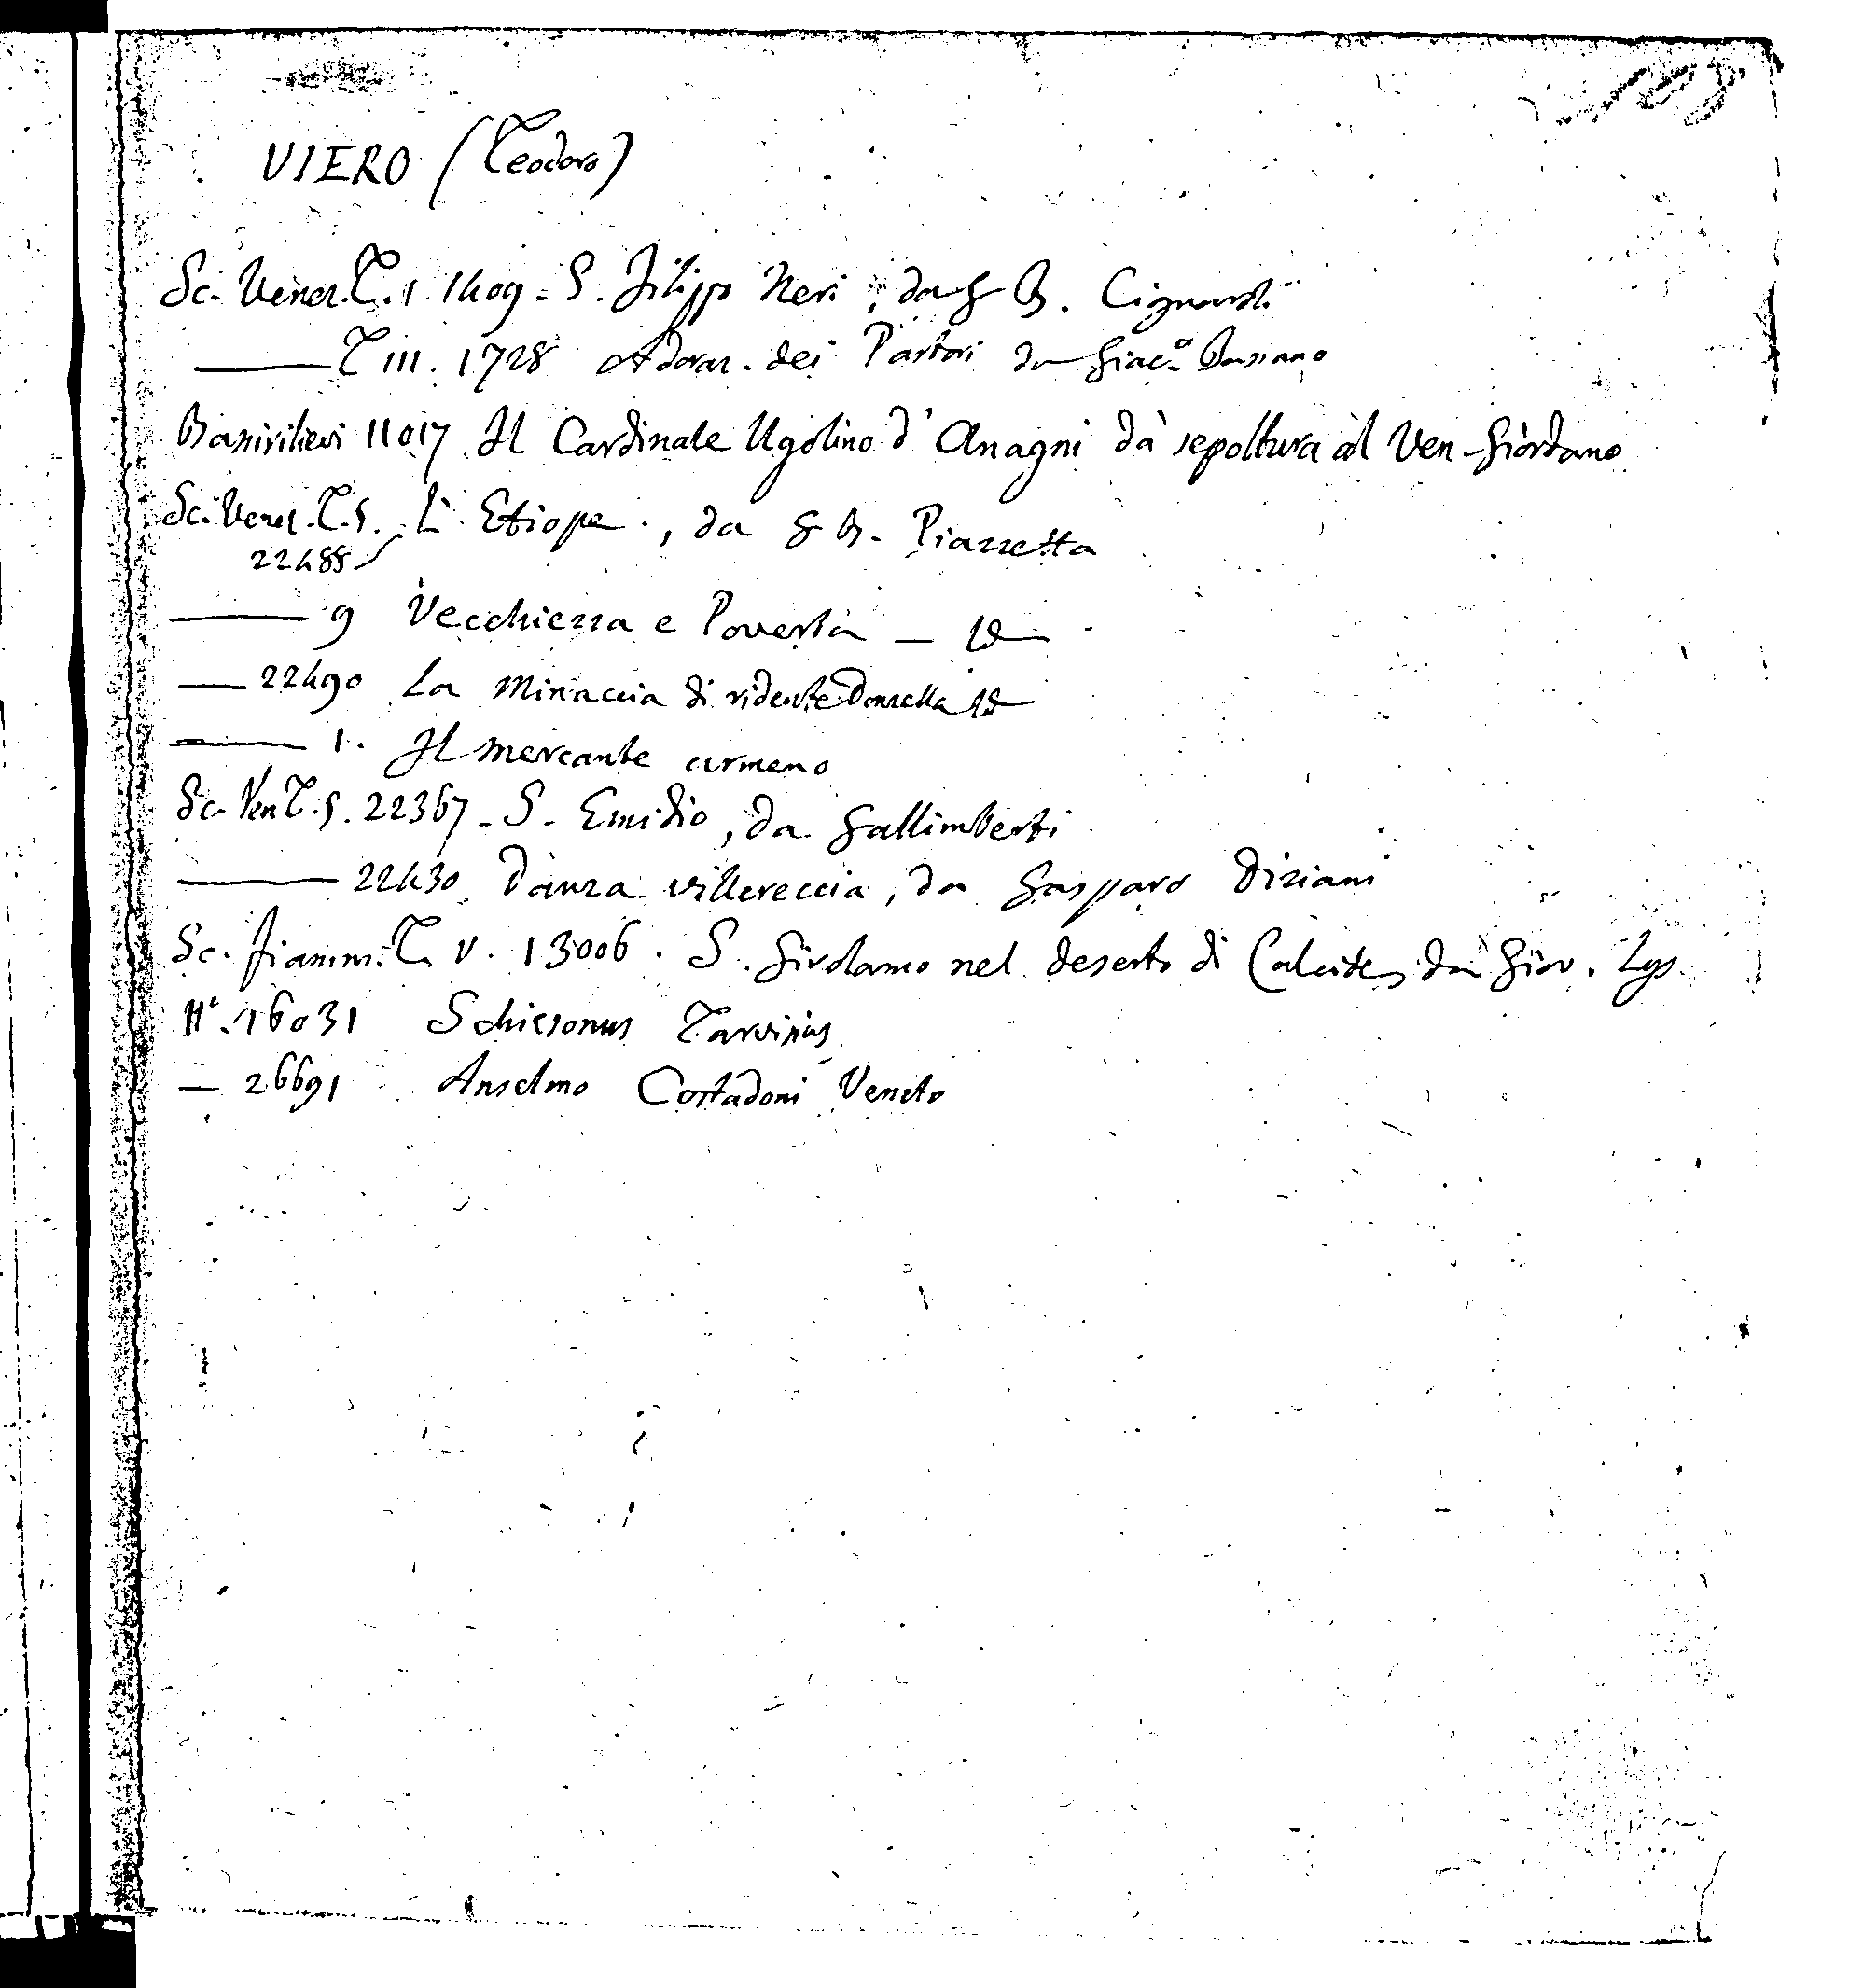 VIERO (Teodoro)
Sc. Venez. T. 1. 1409 - S. Filippo Neri, da G B. Cignaroli
——— T III. 1728 Adoraz. dei Pastori da Giac.º Bassano
Bassirilievi 11017 Il Cardinale Ugolino d'Anagni dà sepoltura al Ven. Giordano
Sc. Venez. T. 5. L'Etiope, da G B. Piazzetta
22488
——— 9 Vecchiezza e Povertà — Id
— 22490 La Minaccia di ridente Donzella Id
——— 1. Il mercante armeno
Sc. Ven T. 5. 22367 - S. Emidio, da Gallimberti
——— 22430 Danza villereccia, da Gasparo Diziani
Sc. fiamm. T. V. 13006. S. Girolamo nel deserto di da Giov. Lys.
Nº. 16031 Schiesonus Tarvisius
— 26691 Anselmo Costadoni Veneto